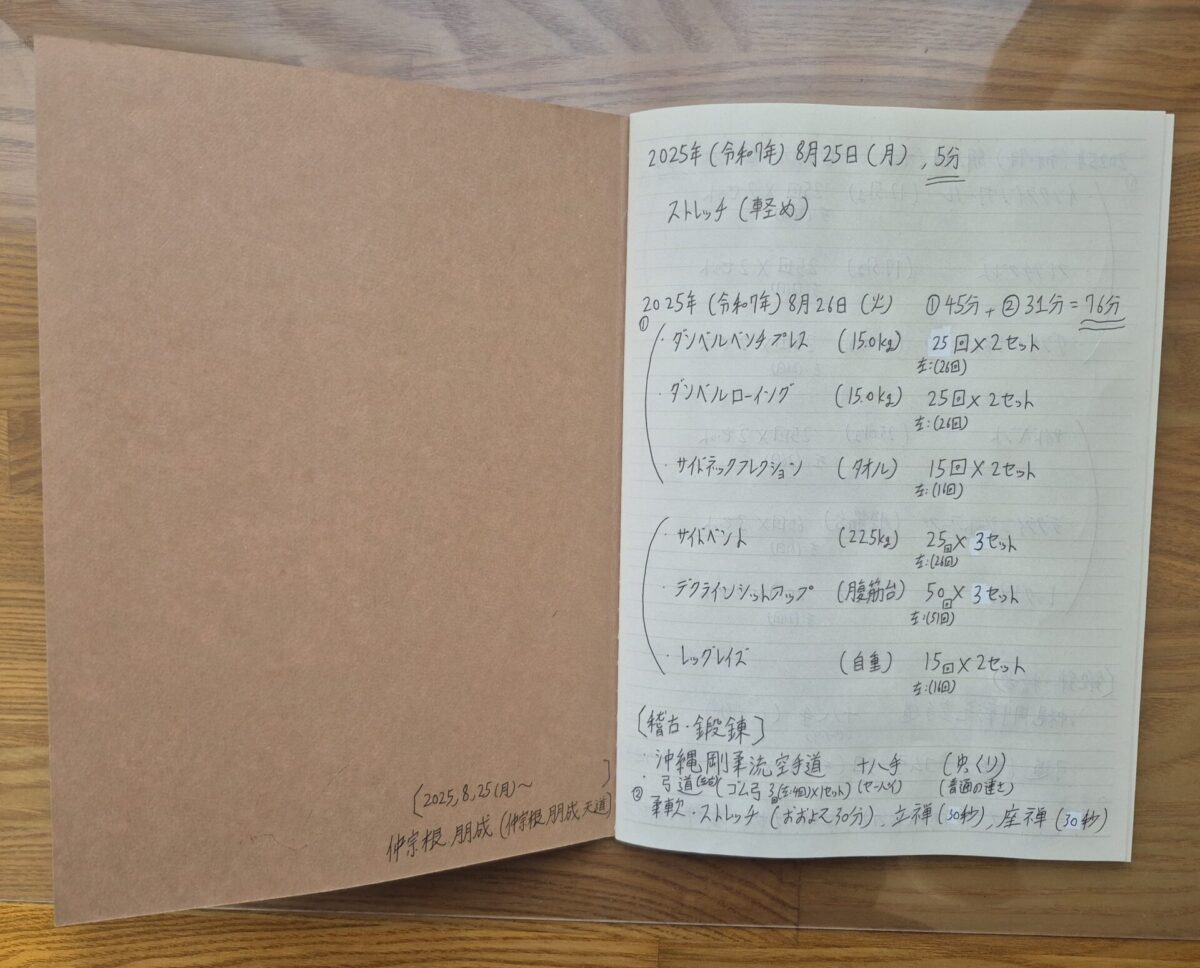 [2025,8,25(月)~ ]
仲宗根 朋成 (仲宗根 朋成 天道)
2025年 (令和7年) 8月25日 (月) , 5分
ストレッチ (軽め)
2025年 (令和7年) 8月26日 (火) ①45分 + ②31分 = 76分
①
・ダンベルベンチプレス (15.0kg) 25回×2セット
左:(26回)
・ダンベルローイング (15.0kg) 25回×2セット
左:(26回)
・サイドネックフレクション (タオル) 15回×2セット
左:(16回)
・サイドベント (22.5kg) 25回×3セット
左:(26回)
・デクラインシットアップ (腹筋台) 50回×3セット
左:(51回)
・レッグレイズ (自重) 15回×2セット
左:(16回)
[稽古・鍛錬]
・沖縄剛柔流空手道 十八手 (ゆっくり)
・弓道 (ゴム弓 3回(左:4回)×1セット) (セーパイ) (普通の速さ)
② 柔軟・ストレッチ (おおよそ30分)、立禅 (30秒)、座禅 (30秒)